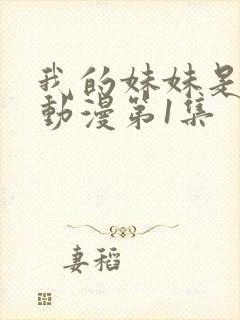 我的妹妹是
動漫第1集
妻稻